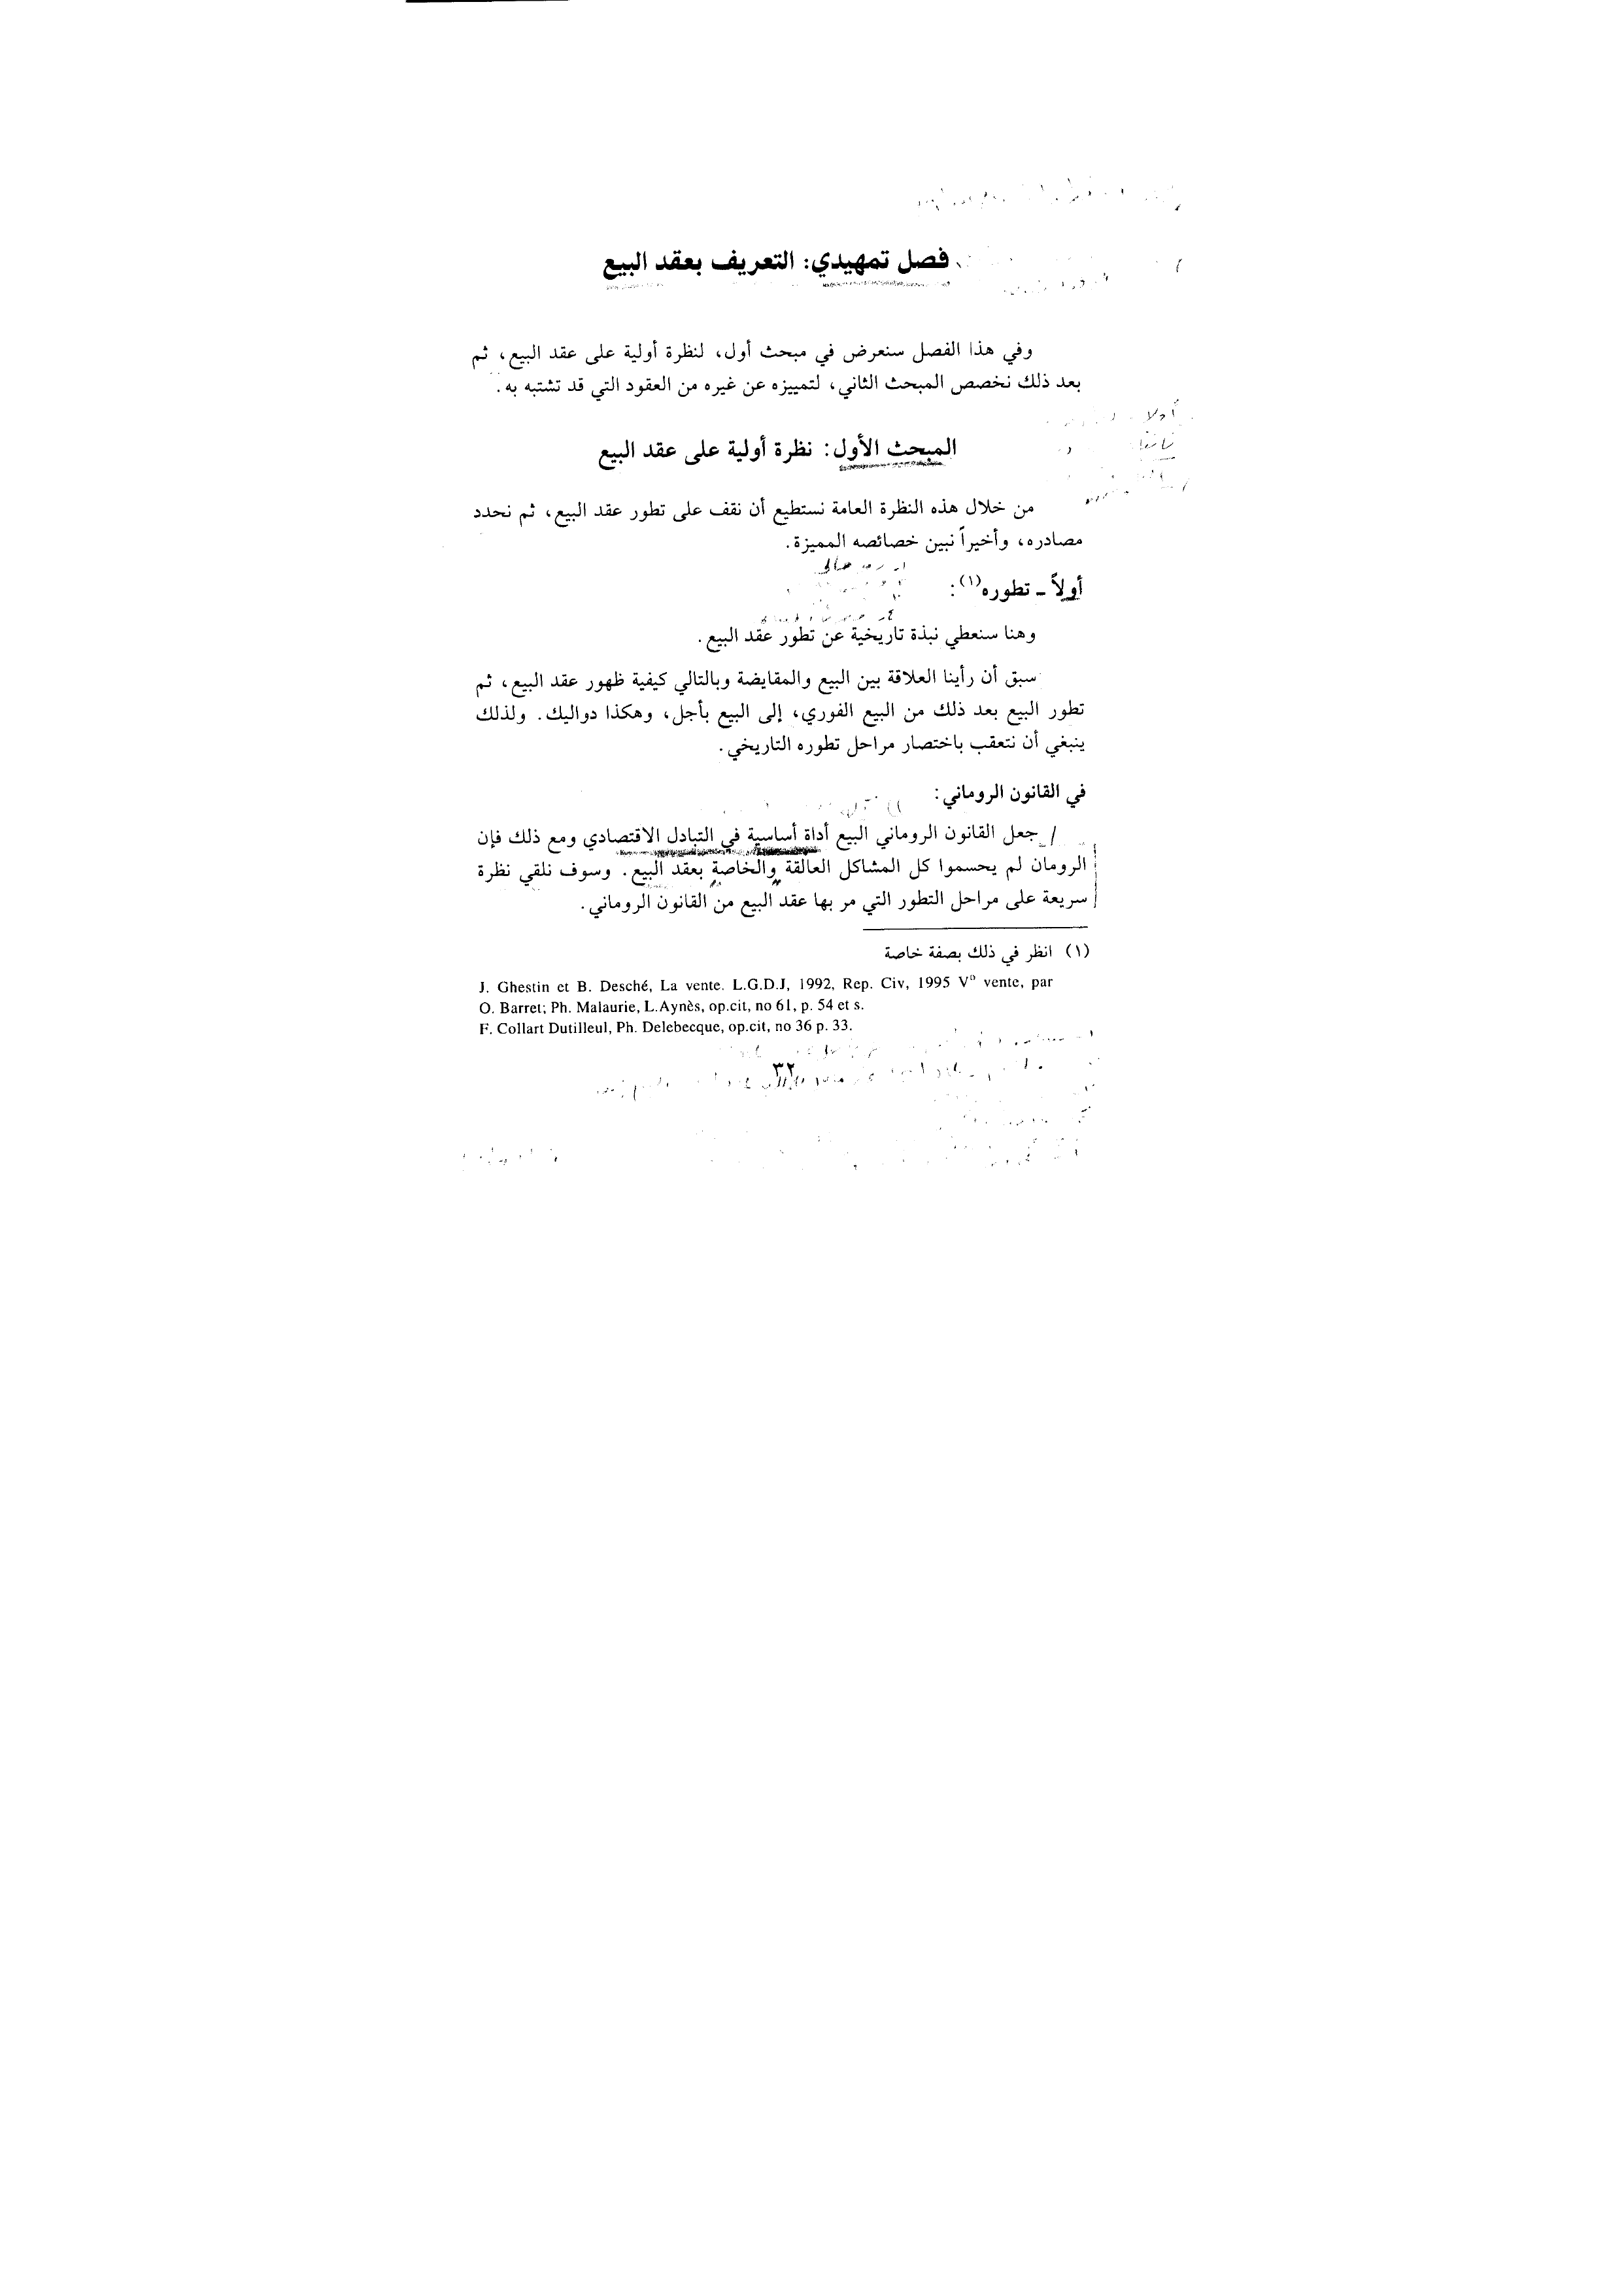 فصل تمهيدي: التعريف بعقد البيع
وفي هذا الفصل سنعرض في مبحث أول، لنظرة أولية على عقد البيع، ثم
بعد ذلك نخصص المبحث الثاني، لتمييزه عن غيره من العقود التي قد تشتبه به.
المبحث الأول: نظرة أولية على عقد البيع
من خلال هذه النظرة العامة نستطيع أن نقف على تطور عقد البيع، ثم نحدد
مصادره، وأخيراً نبين خصائصه المميزة.
أولاً ـ تطوره(١):
وهنا سنعطي نبذة تاريخية عن تطور عقد البيع.
سبق أن رأينا العلاقة بين البيع والمقايضة وبالتالي كيفية ظهور عقد البيع، ثم
تطور البيع بعد ذلك من البيع الفوري، إلى البيع بأجل، وهكذا دواليك. ولذلك
ينبغي أن نتعقب باختصار مراحل تطوره التاريخي.
في القانون الروماني:
جعل القانون الروماني البيع أداة أساسية في التبادل الاقتصادي ومع ذلك فإن
الرومان لم يحسموا كل المشاكل العالقة والخاصة بعقد البيع. وسوف نلقي نظرة
سريعة على مراحل التطور التي مر بها عقد البيع من القانون الروماني.
(١) انظر في ذلك بصفة خاصة
J. Ghestin et B. Desché, La vente. L.G.D.J, 1992, Rep. Civ, 1995 Vº vente, par
O. Barret; Ph. Malaurie, L.Aynès, op.cit, no 61, p. 54 et s.
F. Collart Dutilleul, Ph. Delebecque, op.cit, no 36 p. 33.
٣٢